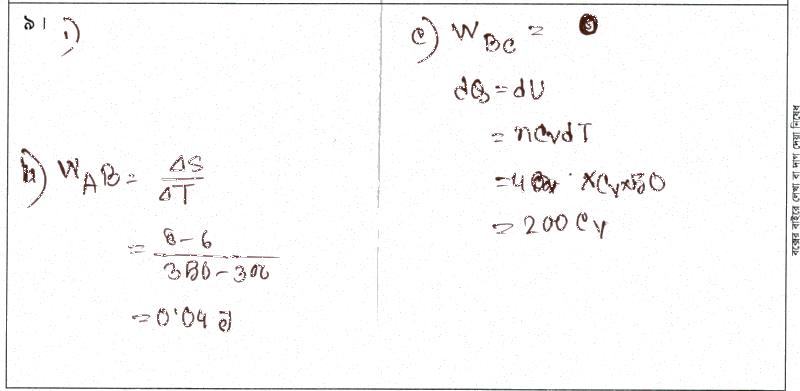 ৯।
i)
ii) W_AB = ΔS/ΔT
= 8-6/350-300
= 0.04 J
c) W_BC =
dQ = dU
= nCvdT
= 4 × Cv × 50
= 200 Cv
বক্সের বাইরে লেখা বা দাগ দেয়া নিষেধ